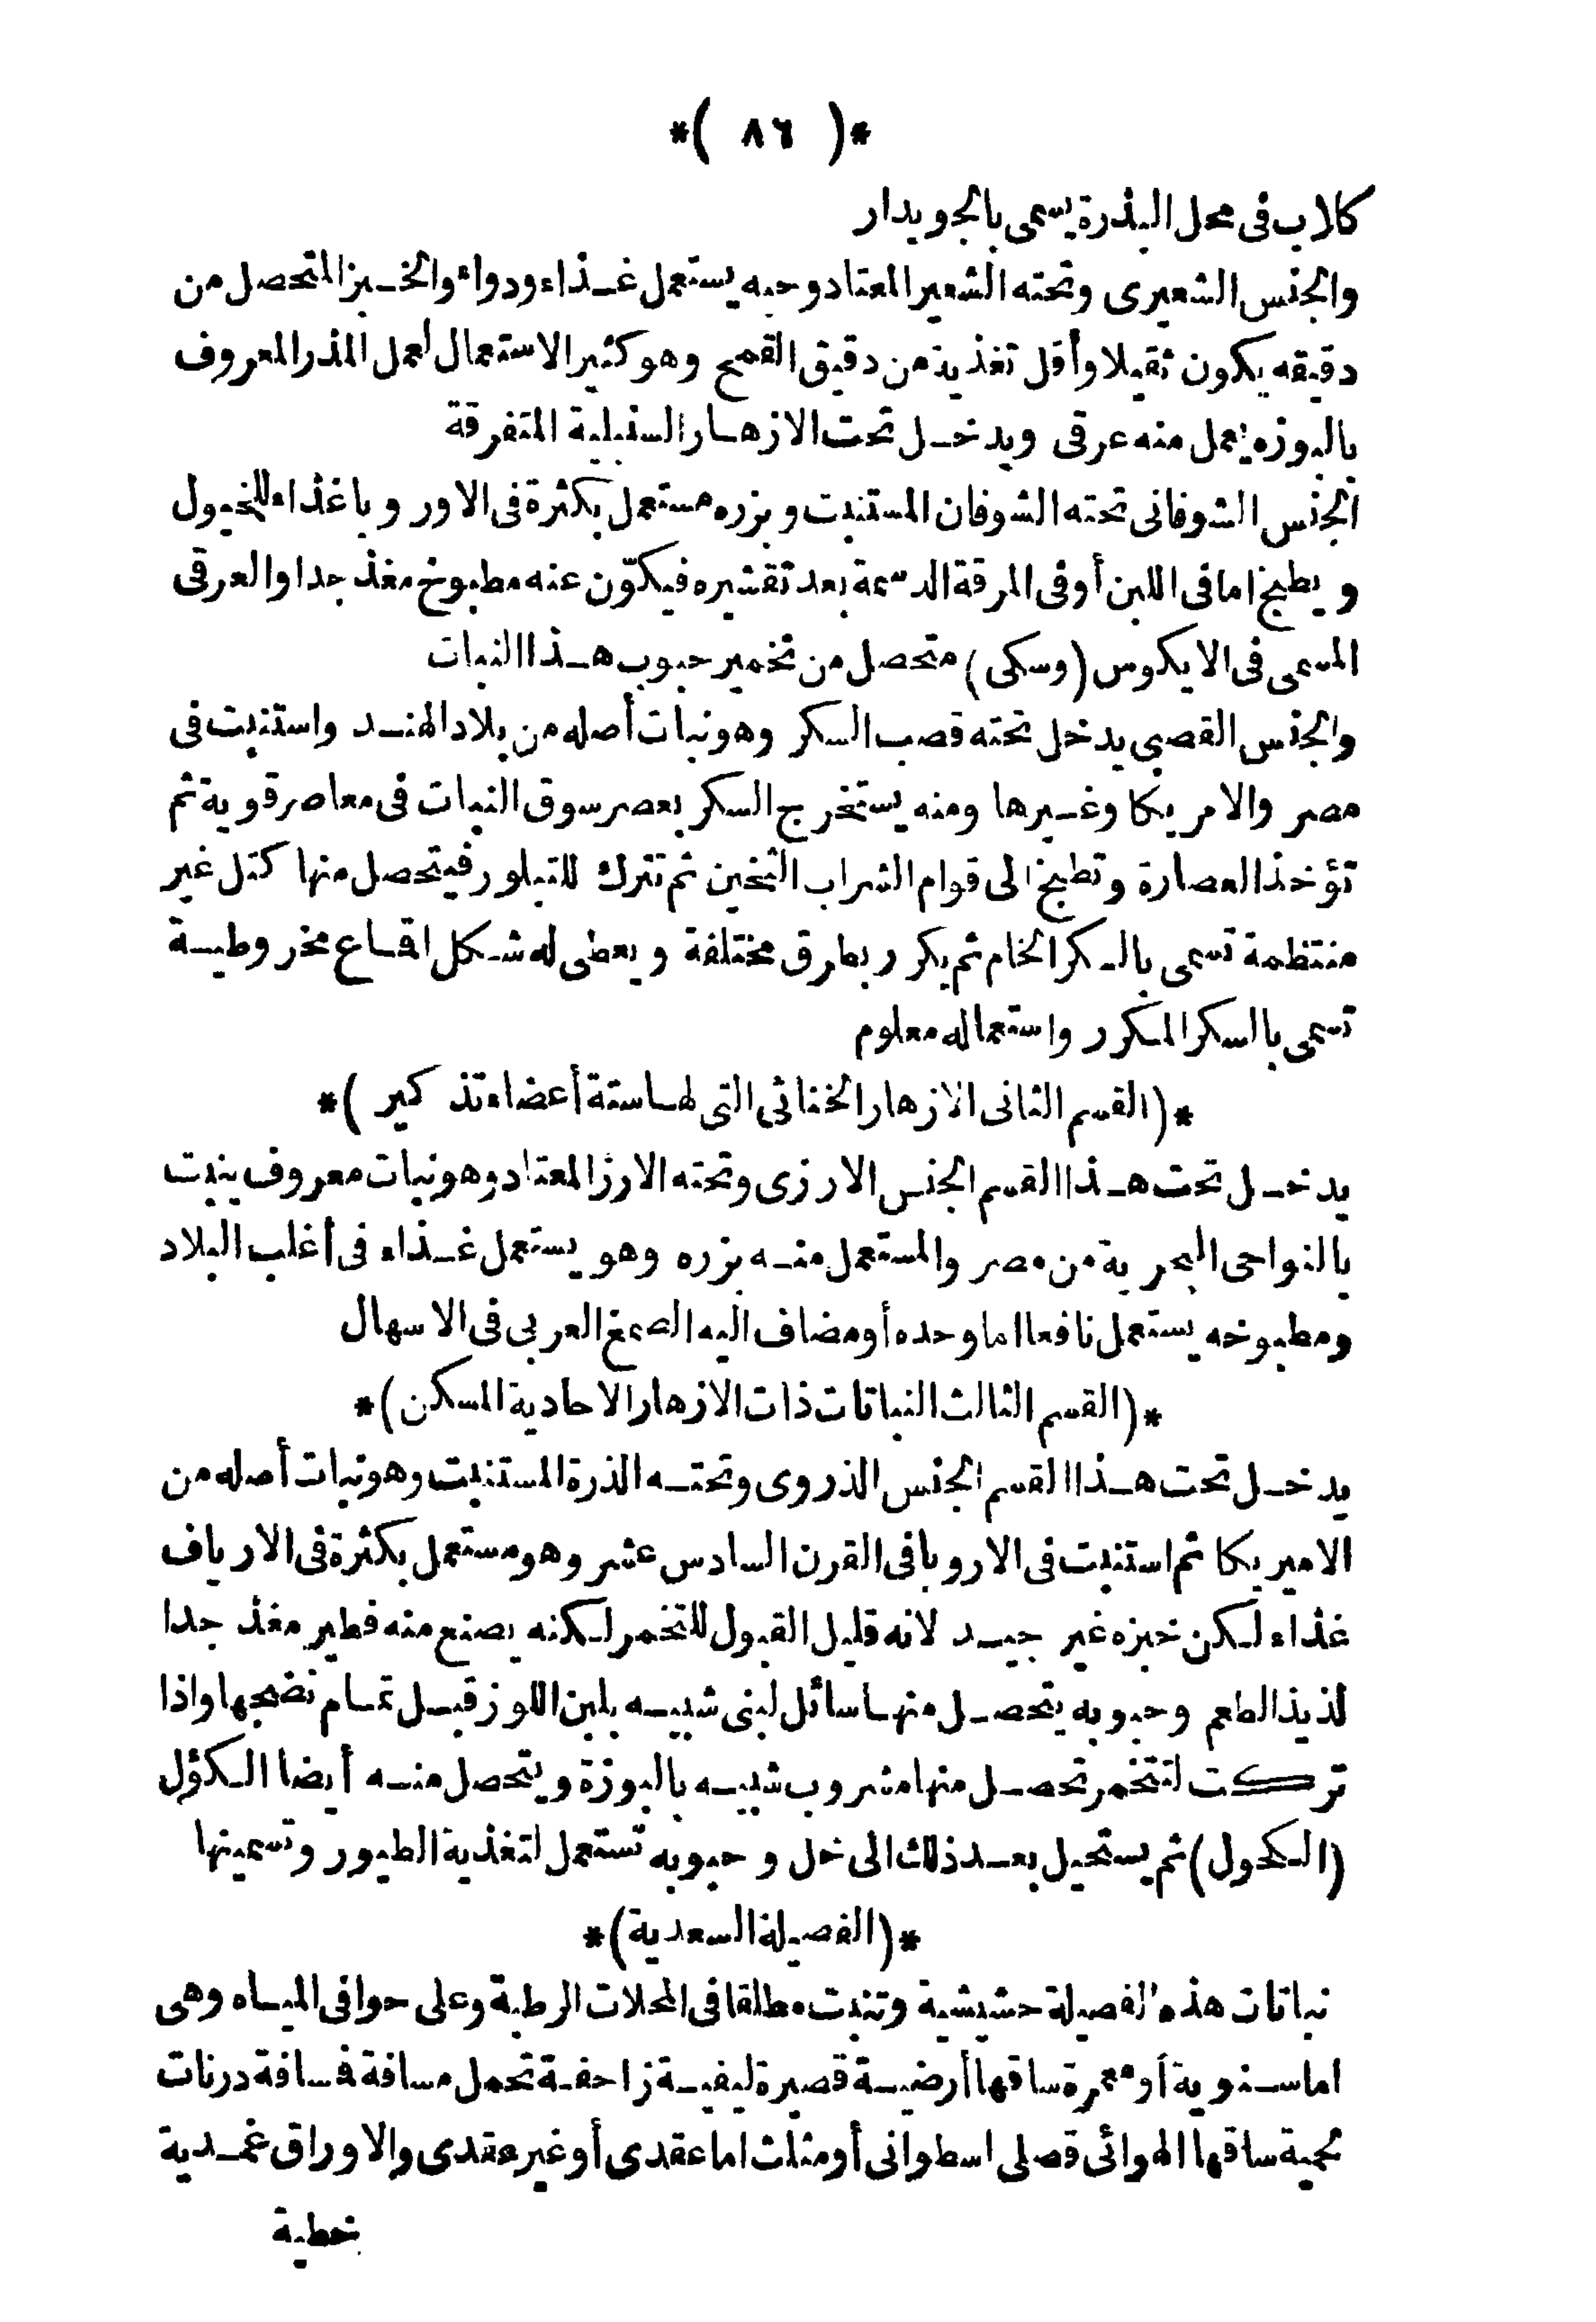 *( ٨٦ )*
كلاب فى محل البذرة يسمى بالجويدار
والجنس الشعيرى وتحته الشعير المعتاد وحبه يستعمل غذاء ودواء والخبز المتحصل من
دقيقه يكون ثقيلا وأقل تغذية من دقيق القمح وهو كثير الاستعمال لعمل المذر المعروف
بالبوزه يعمل منه عرقى ويدخل تحت الازهار السنبلية المتفرقة
الجنس الشوفانى تحته الشوفان المستنبت وبزره مستعمل بكثرة فى الاوروبا غذاء للخيول
ويطبخ اما فى اللبن أو فى المرقة الدسمة بعد تقشيره فيكوّن عنه مطبوخ مغذ جدا والعرقى
المسمى فى الايكوس (وسكى) متحصل من تخمير حبوب هذا النبات
والجنس القصبى يدخل تحته قصب السكر وهو نبات أصله من بلاد الهند واستنبت فى
مصر والامريكا وغيرها ومنه يستخرج السكر بعصر سوق النبات فى معاصر قوية ثم
تؤخذ العصارة وتطبخ الى قوام الشراب الثخين ثم تترك للتبلور فيتحصل منها كتل غير
منتظمة تسمى بالسكر الخام ثم يكرر بطرق مختلفة ويعطى له شكل اقماع مخروطية
تسمى بالسكر المكرر واستعماله معلوم
*(القسم الثانى الازهار الخناثى التى لها ستة أعضاء تذكير)*
يدخل تحت هذا القسم الجنس الارزى وتحته الارز المعتاد وهو نبات معروف ينبت
بالنواحى البحرية من مصر والمستعمل منه بزره وهو يستعمل غذاء فى أغلب البلاد
ومطبوخه يستعمل نافعا اما وحده أو مضاف اليه الصمغ العربى فى الاسهال
*(القسم الثالث النباتات ذات الازهار الاحادية المسكن)*
يدخل تحت هذا القسم الجنس الذروى وتحته الذرة المستنبت وهو نبات أصله من
الاميريكا ثم استنبت فى الاروبا فى القرن السادس عشر وهو مستعمل بكثرة فى الارياف
غذاء لكن خبزه غير جيد لانه قليل القبول للتخمر لكنه يصنع منه فطير مغذ جدا
لذيذ الطعم وحبوبه يتحصل منها سائل لبنى شبيه بلبن اللوز قبل تمام نضجها واذا
تركت لتتخمر تحصل منها مشروب شبيه بالبوزة ويتحصل منه أيضا الكؤل
(الكحول) ثم يستحيل بعد ذلك الى خل وحبوبه تستعمل لتغذية الطيور وتسمينها
*(الفصيلة السعدية)*
نباتات هذه الفصيلة حشيشية وتنبت مطلقا فى المحلات الرطبة وعلى حوافى المياه وهى
اما سنوية أو معمرة ساقها أرضية قصيرة ليفية زاحفة تحمل مسافة فمسافة درنات
لحمية ساقها الهوائى قصلى اسطوانى أو مثلث اما عقدى أو غير عقدى والاوراق غمدية
خطية